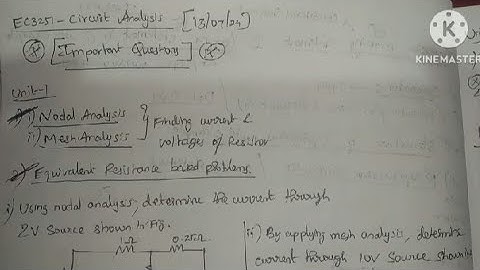 EC3251 - Circuit Analysis [13/07/24]
[Important Questions]
KINEMASTER
Unit-1
1) i) Nodal Analysis
ii) Mesh Analysis
Finding current &
voltages of Resistor
2) Equivalent Resistance based problems.
i) Using nodal analysis, determine the current through
2V source shown in Fig.
1Ω 0.25Ω
ii) By applying mesh analysis, determine
current through 10V source shown in